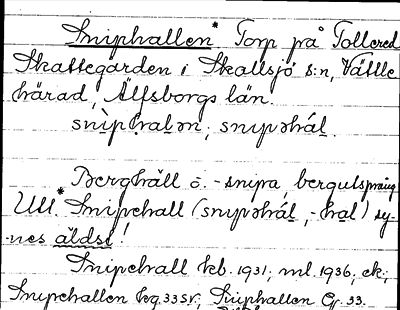 Sniphallen* Torp på Tollered
Skattegården i Skallsjö s:n, Vättle
härad, Älfsborgs län.
snìphalən, snıpəhál.
Berghäll o. -snipa, bergutspräng
Utt.* Snipehall (snıpəhál, -hal) sy-
nes äldst!
Snipehall kb. 1931; ml. 1936, ek.;
Snipehallen hg. 33 sv., Sniphallen Gr. 33.